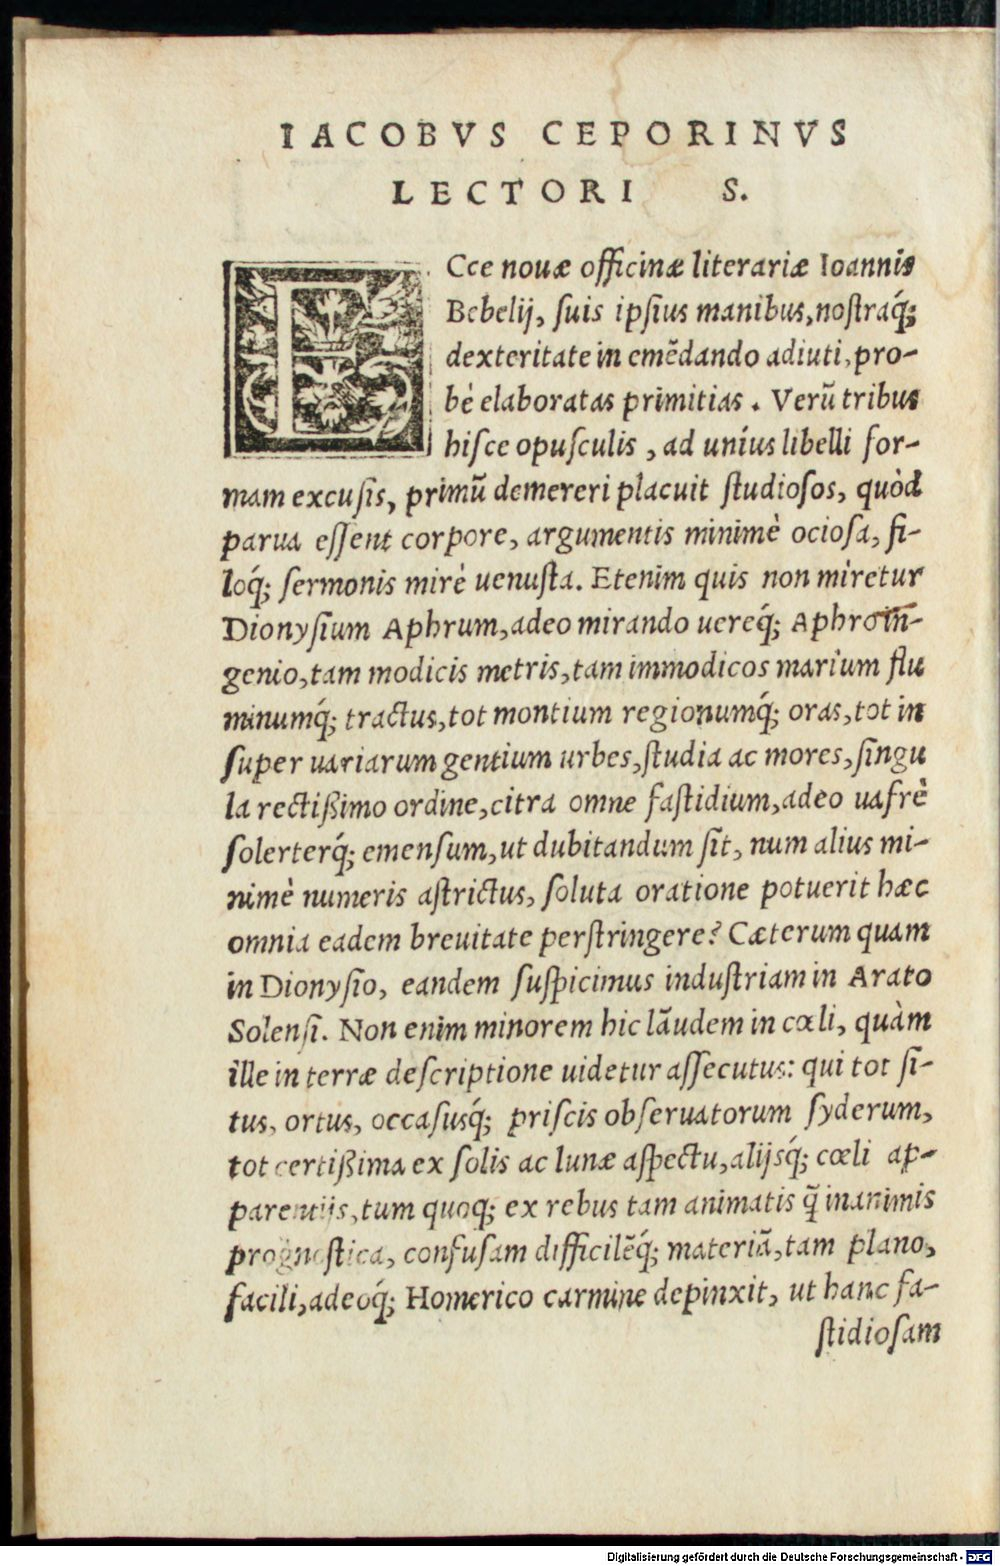 IACOBVS CEPORINVS
LECTORI S.
ECce nouæ officinæ literariæ Ioannis
Bebelij, suis ipsius manibus, nostraq́;
dexteritate in emẽdando adiuti, pro-
bè elaboratas primitias. Verũ tribus
hisce opusculis, ad unius libelli for-
mam excusis, primũ demereri placuit studiosos, quòd
parua essent corpore, argumentis minimè ociosa, fi-
loq́; sermonis mirè uenusta. Etenim quis non miretur
Dionysium Aphrum, adeo mirando uereq́; Aphro in-
genio, tam modicis metris, tam immodicos marium flu
minumq́; tractus, tot montium regionumq́; oras, tot in
super uariarum gentium urbes, studia ac mores, singu
la rectißimo ordine, citra omne fastidium, adeo uafrè
solerterq́; emensum, ut dubitandum sit, num alius mi-
nimè numeris astrictus, soluta oratione potuerit hæc
omnia eadem breuitate perstringere? Cæterum quam
in Dionysio, eandem suspicimus industriam in Arato
Solensi. Non enim minorem hic laudem in cœli, quàm
ille in terræ descriptione uidetur assecutus: qui tot si-
tus, ortus, occasusq́; priscis obseruatorum syderum,
tot certißima ex solis ac lunæ aspectu, alijsq́; cœli ap-
parentijs, tum quoq; ex rebus tam animatis q̃ inanimis
prognostica, confusam difficilẽq́; materiã, tam plano,
facili, adeoq́; Homerico carmine depinxit, ut hanc fa-
stidiosam
Digitalisierung gefördert durch die Deutsche Forschungsgemeinschaft - DFG